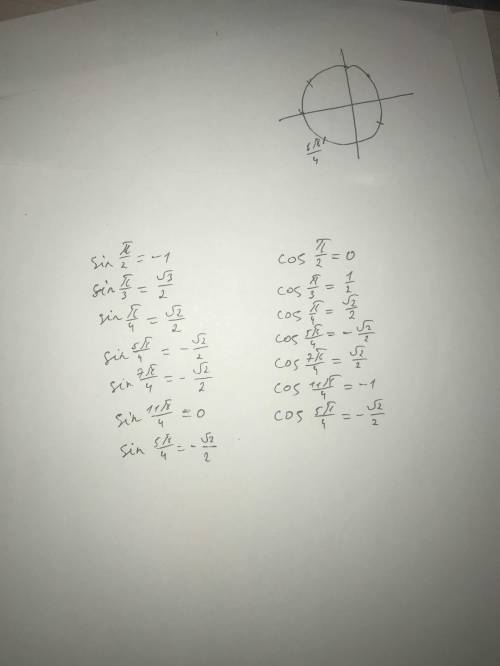 5π/4
sin π/2 = -1
sin π/3 = √3/2
sin π/4 = √2/2
sin 5π/4 = -√2/2
sin 7π/4 = -√2/2
sin 11π/4 = 0
sin 5π/4 = -√2/2
cos π/2 = 0
cos π/3 = 1/2
cos π/4 = √2/2
cos 5π/4 = -√2/2
cos 7π/4 = √2/2
cos 11π/4 = -1
cos 5π/4 = -√2/2